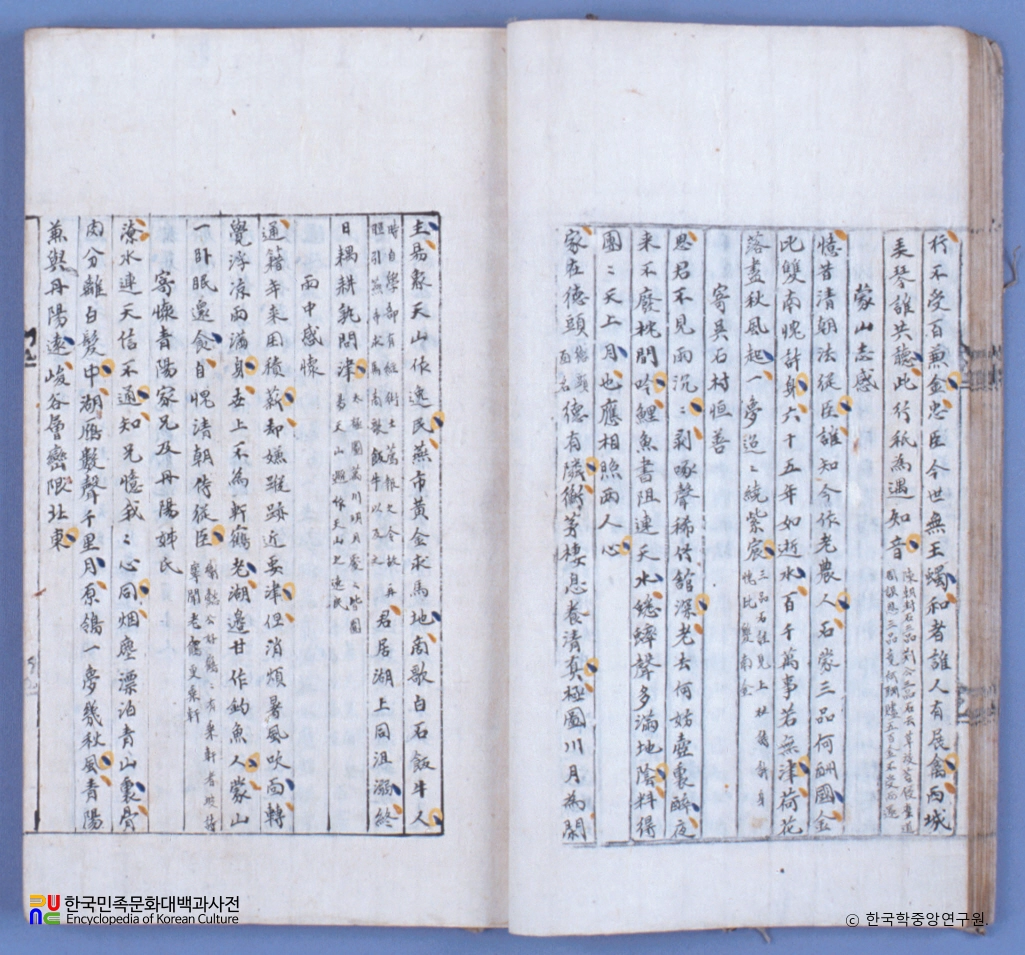 行不受百兼金忠臣今世無王蠋和者誰人有展禽西城
美琴誰共聽此行秖為遇知音
蒙山志感
憶昔清朝法從臣誰知今作老農人石蒙三品何酬國金
此雙南愧計身六十五年如逝水百千萬事若無津荷花
落盡秋風起一夢迢〻繞紫宸
寄吳石村恒善
思君不見雨沉〻剝啄聲稀供舘深老去何妨壺裏醉夜
来不廢枕間吟鯉魚書阻連天水蟋蟀聲多滿地陰料得
團〻天上月也應相照兩人心
家在德頭德有隣衡茅棲息養清真極圖川月為閑
主易象天山作逸民燕市黃金求馬地南歌白石飯牛人
君居湖上同沮溺終
日耦耕孰問津
雨中感懷
通籍年来困積薪却嫌蹤跡近要津但消煩暑風吹面轉
覺浮凉雨滿身去上不為軒鶴老湖邊甘作釣魚人蒙山
一卧眠還食自愧清朝侍從臣
寄懷青陽家兄及丹陽姊氏
潦水連天信不通知兄憶我〻心同烟塵漂泊青山裏骨
肉分離白髮中湖鴈數聲千里月原鴒一夢幾秋風青陽
兼與丹陽遠峻谷層巒限北東
한국민족문화대백과사전
Encyclopedia of Korean Culture
© 한국학중앙연구원.